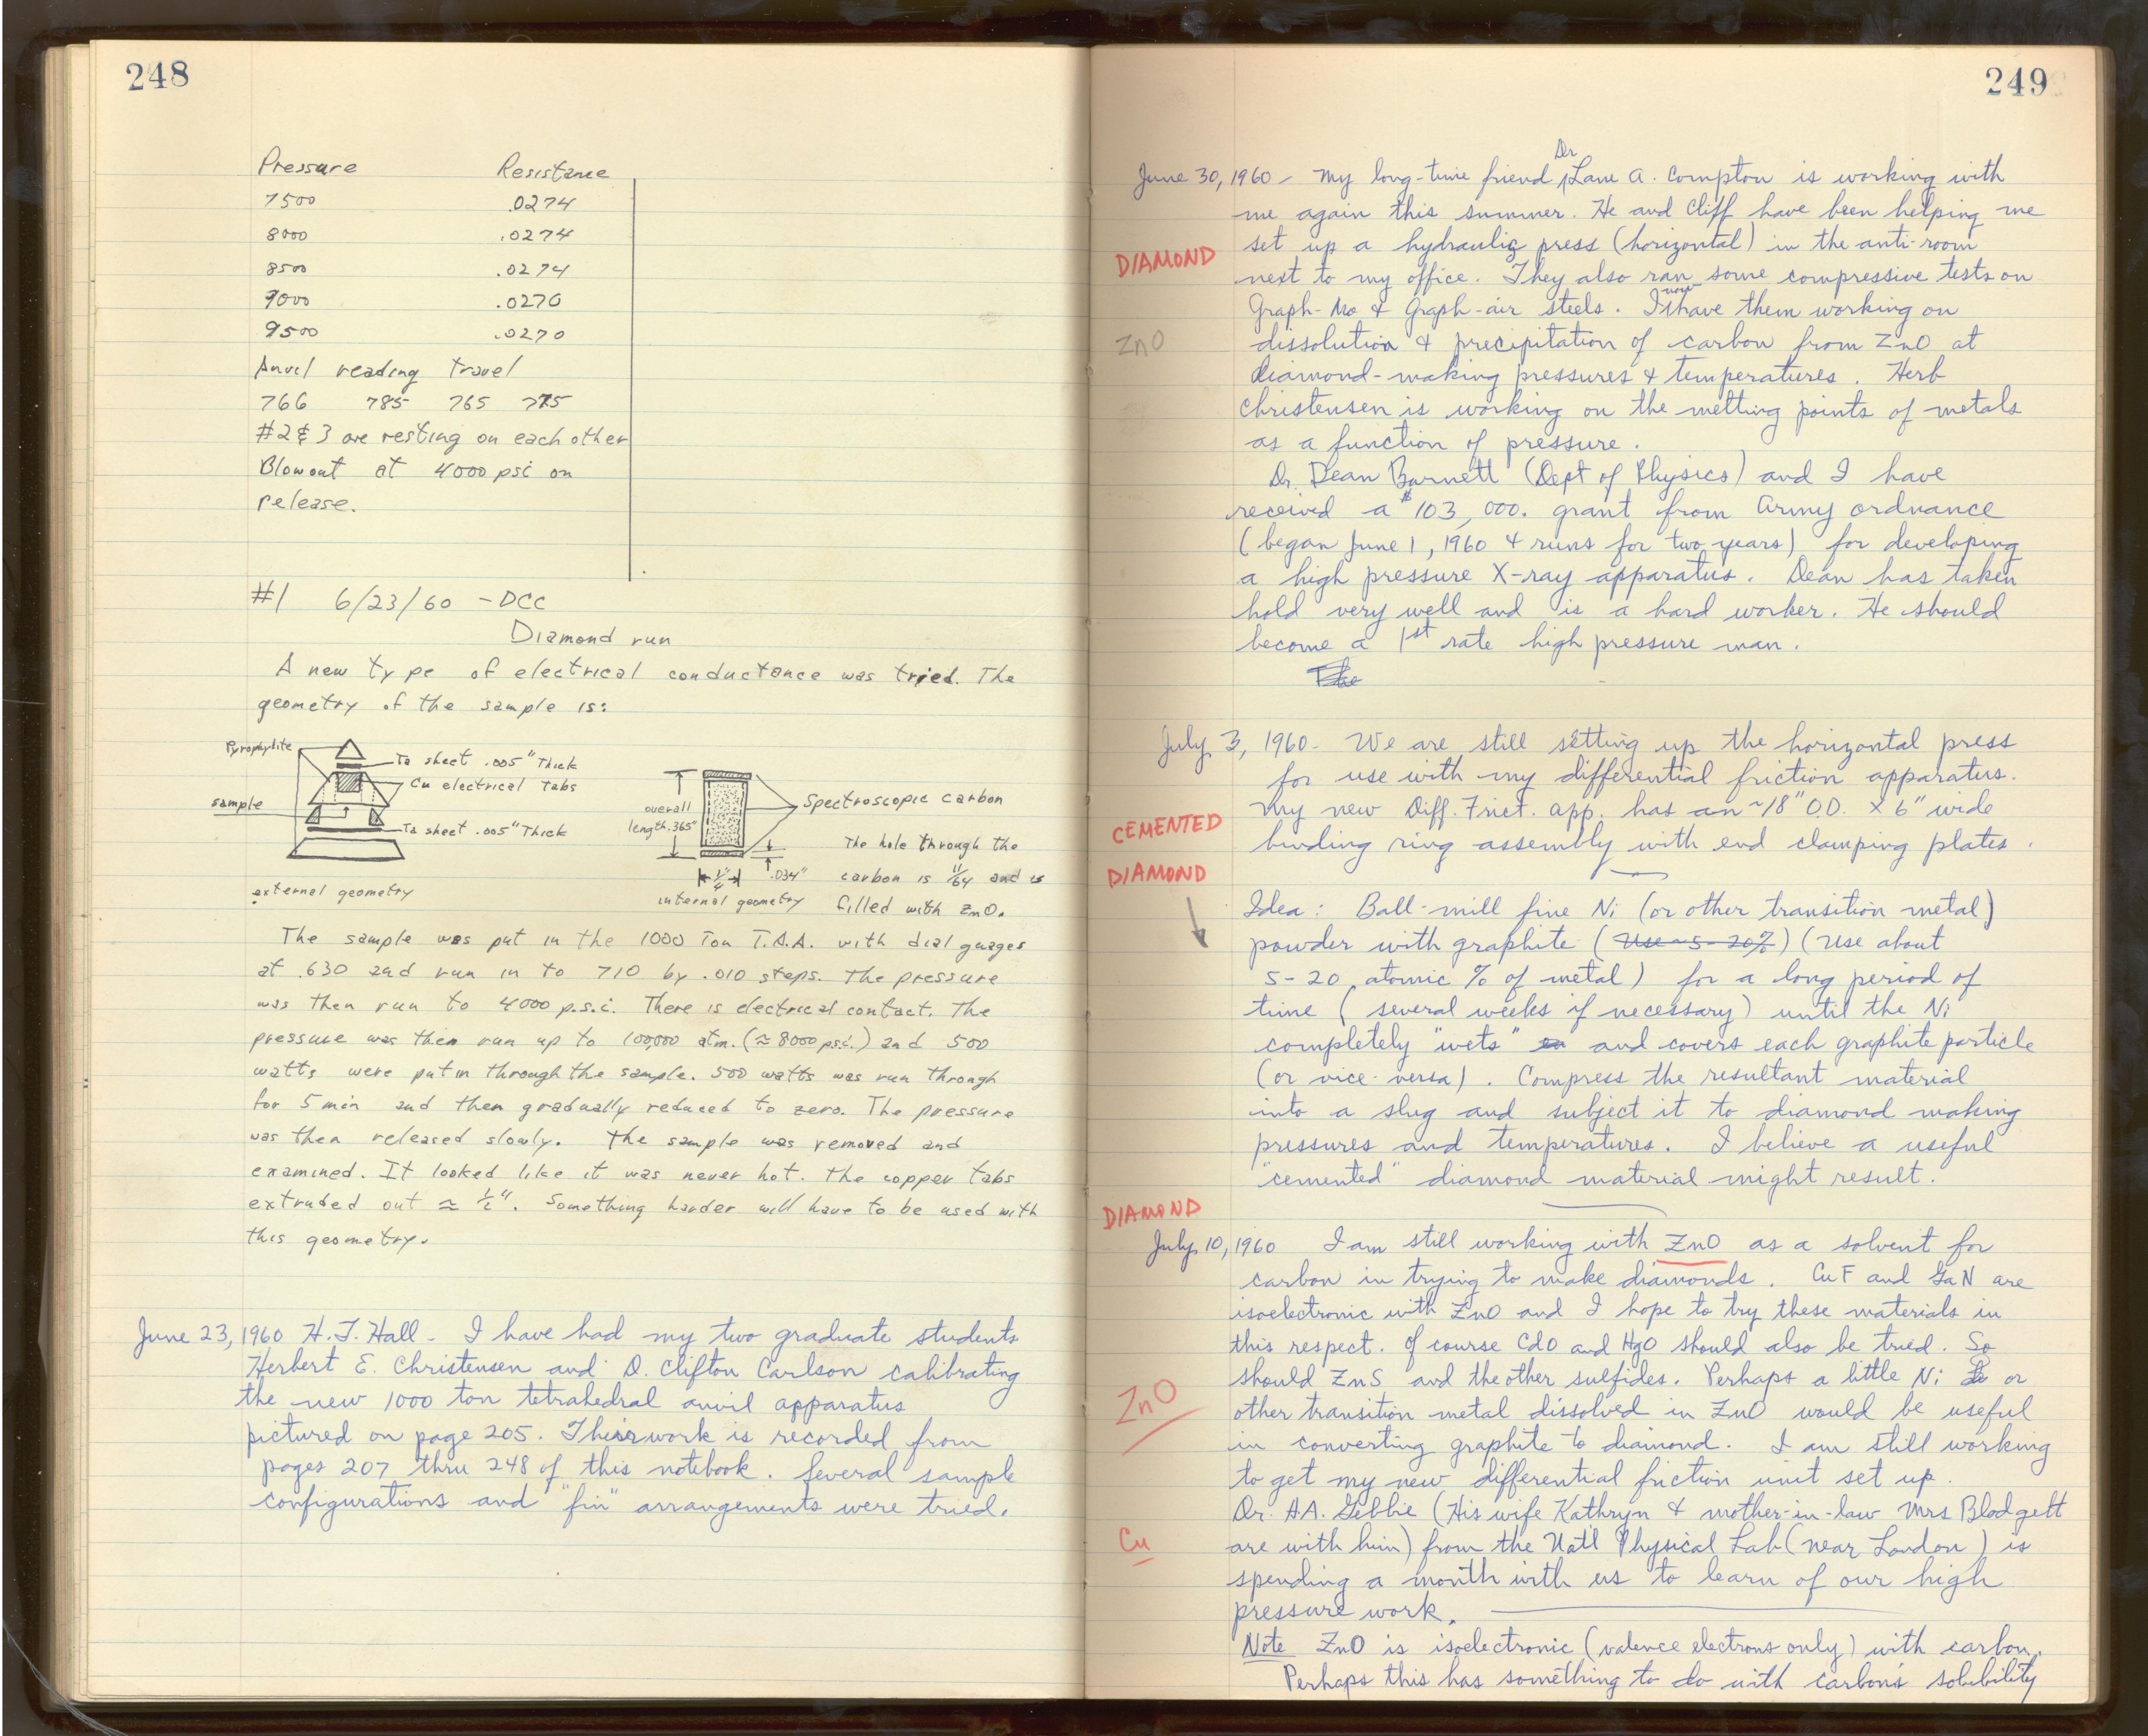 248
Pressure Resistance
7500 .0274
8000 .0274
8500 .0274
9000 .0270
9500 .0270
Anvil reading travel
766 785 765 775
#2 & 3 are resting on each other
Blowout at 4000 psi on
release.
#1 6/23/60 - DCC
Diamond run
A new type of electrical conductance was tried. The
geometry of the sample is:
Pyrophylite
Ta sheet .005" Thick
Cu electrical tabs
sample
Ta sheet .005" Thick
external geometry
overall
length .365"
Spectroscopic carbon
The hole through the
carbon is 11/64 and is
filled with ZnO.
1/4"
.034"
internal geometry
The sample was put in the 1000 Ton T.A.A. with dial guages
at .630 and run in to 710 by .010 steps. The pressure
was then run to 4000 p.s.i. There is electrical contact. The
pressure was then run up to 100,000 atm. (≈ 8000 psi.) and 500
watts were put in through the sample. 500 watts was run through
for 5 min and then gradually reduced to zero. The pressure
was then released slowly. The sample was removed and
examined. It looked like it was never hot. The copper tabs
extruded out ≈ 1/2". Something harder will have to be used with
this geometry.
June 23, 1960 H.T. Hall - I have had my two graduate students
Herbert E. Christensen and D. Clifton Carlson calibrating
the new 1000 ton tetrahedral anvil apparatus
pictured on page 205. Their work is recorded from
pages 207 thru 248 of this notebook. Several sample
configurations and "fin" arrangements were tried.
249
June 30, 1960 - My long-time friend Dr Lane A. Compton is working with
me again this summer. He and Cliff have been helping me
set up a hydraulic press (horizontal) in the anti-room
DIAMOND
next to my office. They also ran some compressive tests on
Graph-Mo & Graph-air steels. I now have them working on
ZnO
dissolution & precipitation of carbon from ZnO at
diamond-making pressures & temperatures. Herb
Christensen is working on the melting points of metals
as a function of pressure.
Dr. Dean Barnett (Dept of Physics) and I have
received a $103,000. grant from Army ordnance
(began June 1, 1960 & runs for two years) for developing
a high pressure X-ray apparatus. Dean has taken
hold very well and is a hard worker. He should
become a 1st rate high pressure man.
The
July 3, 1960 - We are still setting up the horizontal press
for use with my differential friction apparatus.
My new Diff. Frict. app. has an ~18" O.D. x 6" wide
CEMENTED
binding ring assembly with end clamping plates.
DIAMOND
Idea: Ball-mill fine Ni (or other transition metal)
powder with graphite (Use ~5-20%) (Use about
5-20 atomic % of metal) for a long period of
time (several weeks if necessary) until the Ni
completely "wets" and covers each graphite particle
(or vice-versa). Compress the resultant material
into a slug and subject it to diamond making
pressures and temperatures. I believe a useful
"cemented" diamond material might result.
DIAMOND
July 10, 1960 I am still working with ZnO as a solvent for
carbon in trying to make diamonds. CuF and GaN are
isoelectronic with ZnO and I hope to try these materials in
this respect. Of course CdO and HgO should also be tried. So
should ZnS and the other sulfides. Perhaps a little Ni or
ZnO
other transition metal dissolved in ZnO would be useful
in converting graphite to diamond. I am still working
to get my new differential friction unit set up.
Dr. H.A. Gebbie (His wife Kathryn & mother-in-law Mrs Blodgett
Cu
are with him) from the Nat'l Physical Lab (near London) is
spending a month with us to learn of our high
pressure work.
Note ZnO is isoelectronic (valence electrons only) with carbon.
Perhaps this has something to do with carbon's solubility